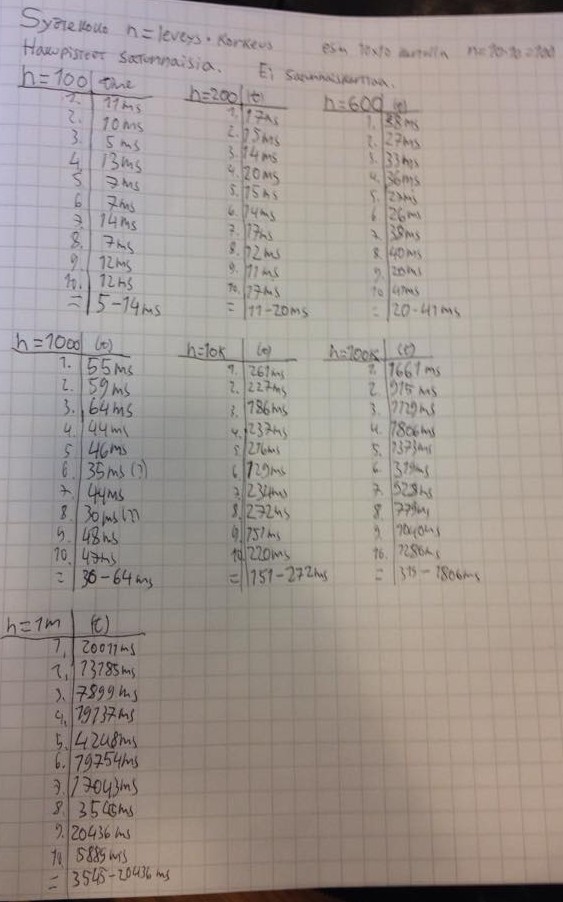 Syötekoko n = leveys · korkeus esim 10x10 kartalla n=10·10=100
Hakupisteet satunnaisia. Ei satunnaiskarttaa.
n=100 time
1. 11ms
2. 10ms
3. 5ms
4. 13ms
5 7ms
6 7ms
7. 14ms
8. 7ms
9. 12ms
10. 12ms
= 5-14ms
n=200 (t)
1. 17ms
2. 15ms
3. 14ms
4. 20ms
5. 15ms
6. 14ms
7. 17ms
8. 12ms
9. 11ms
10. 17ms
= 11-20ms
n=600 (t)
1. 28ms
2. 27ms
3. 33ms
4. 36ms
5.
6 26ms
7. 38ms
8. 40ms
9. 20ms
10 41ms
= 20-41ms
n=1000 (t)
1. 55ms
2. 59ms
3. 64ms
4. 44ms
5 46ms
6. 35ms (?)
7. 44ms
8. 30ms (?)
9. 48ms
10. 47ms
= 30-64ms
n=10k (t)
1. 261ms
2. 227ms
3. 186ms
4. 237ms
5. 216ms
6.
7. 234ms
8. 272ms
9. 151ms
10 220ms
= 151-272ms
n=100k (t)
1. 1661ms
2. 915ms
3. 1129ms
4. 1806ms
5. 1373ms
6. 319ms
7. 528ms
8. 779ms
9. 1040ms
10. 1280ms
= 319-1806ms
n=1m (t)
1. 20011ms
2. 13185ms
3. 7899ms
4. 19137ms
5. 4248ms
6. 19754ms
7. 17043ms
8. 3545ms
9. 20436ms
10 5885ms
= 3545-20436ms